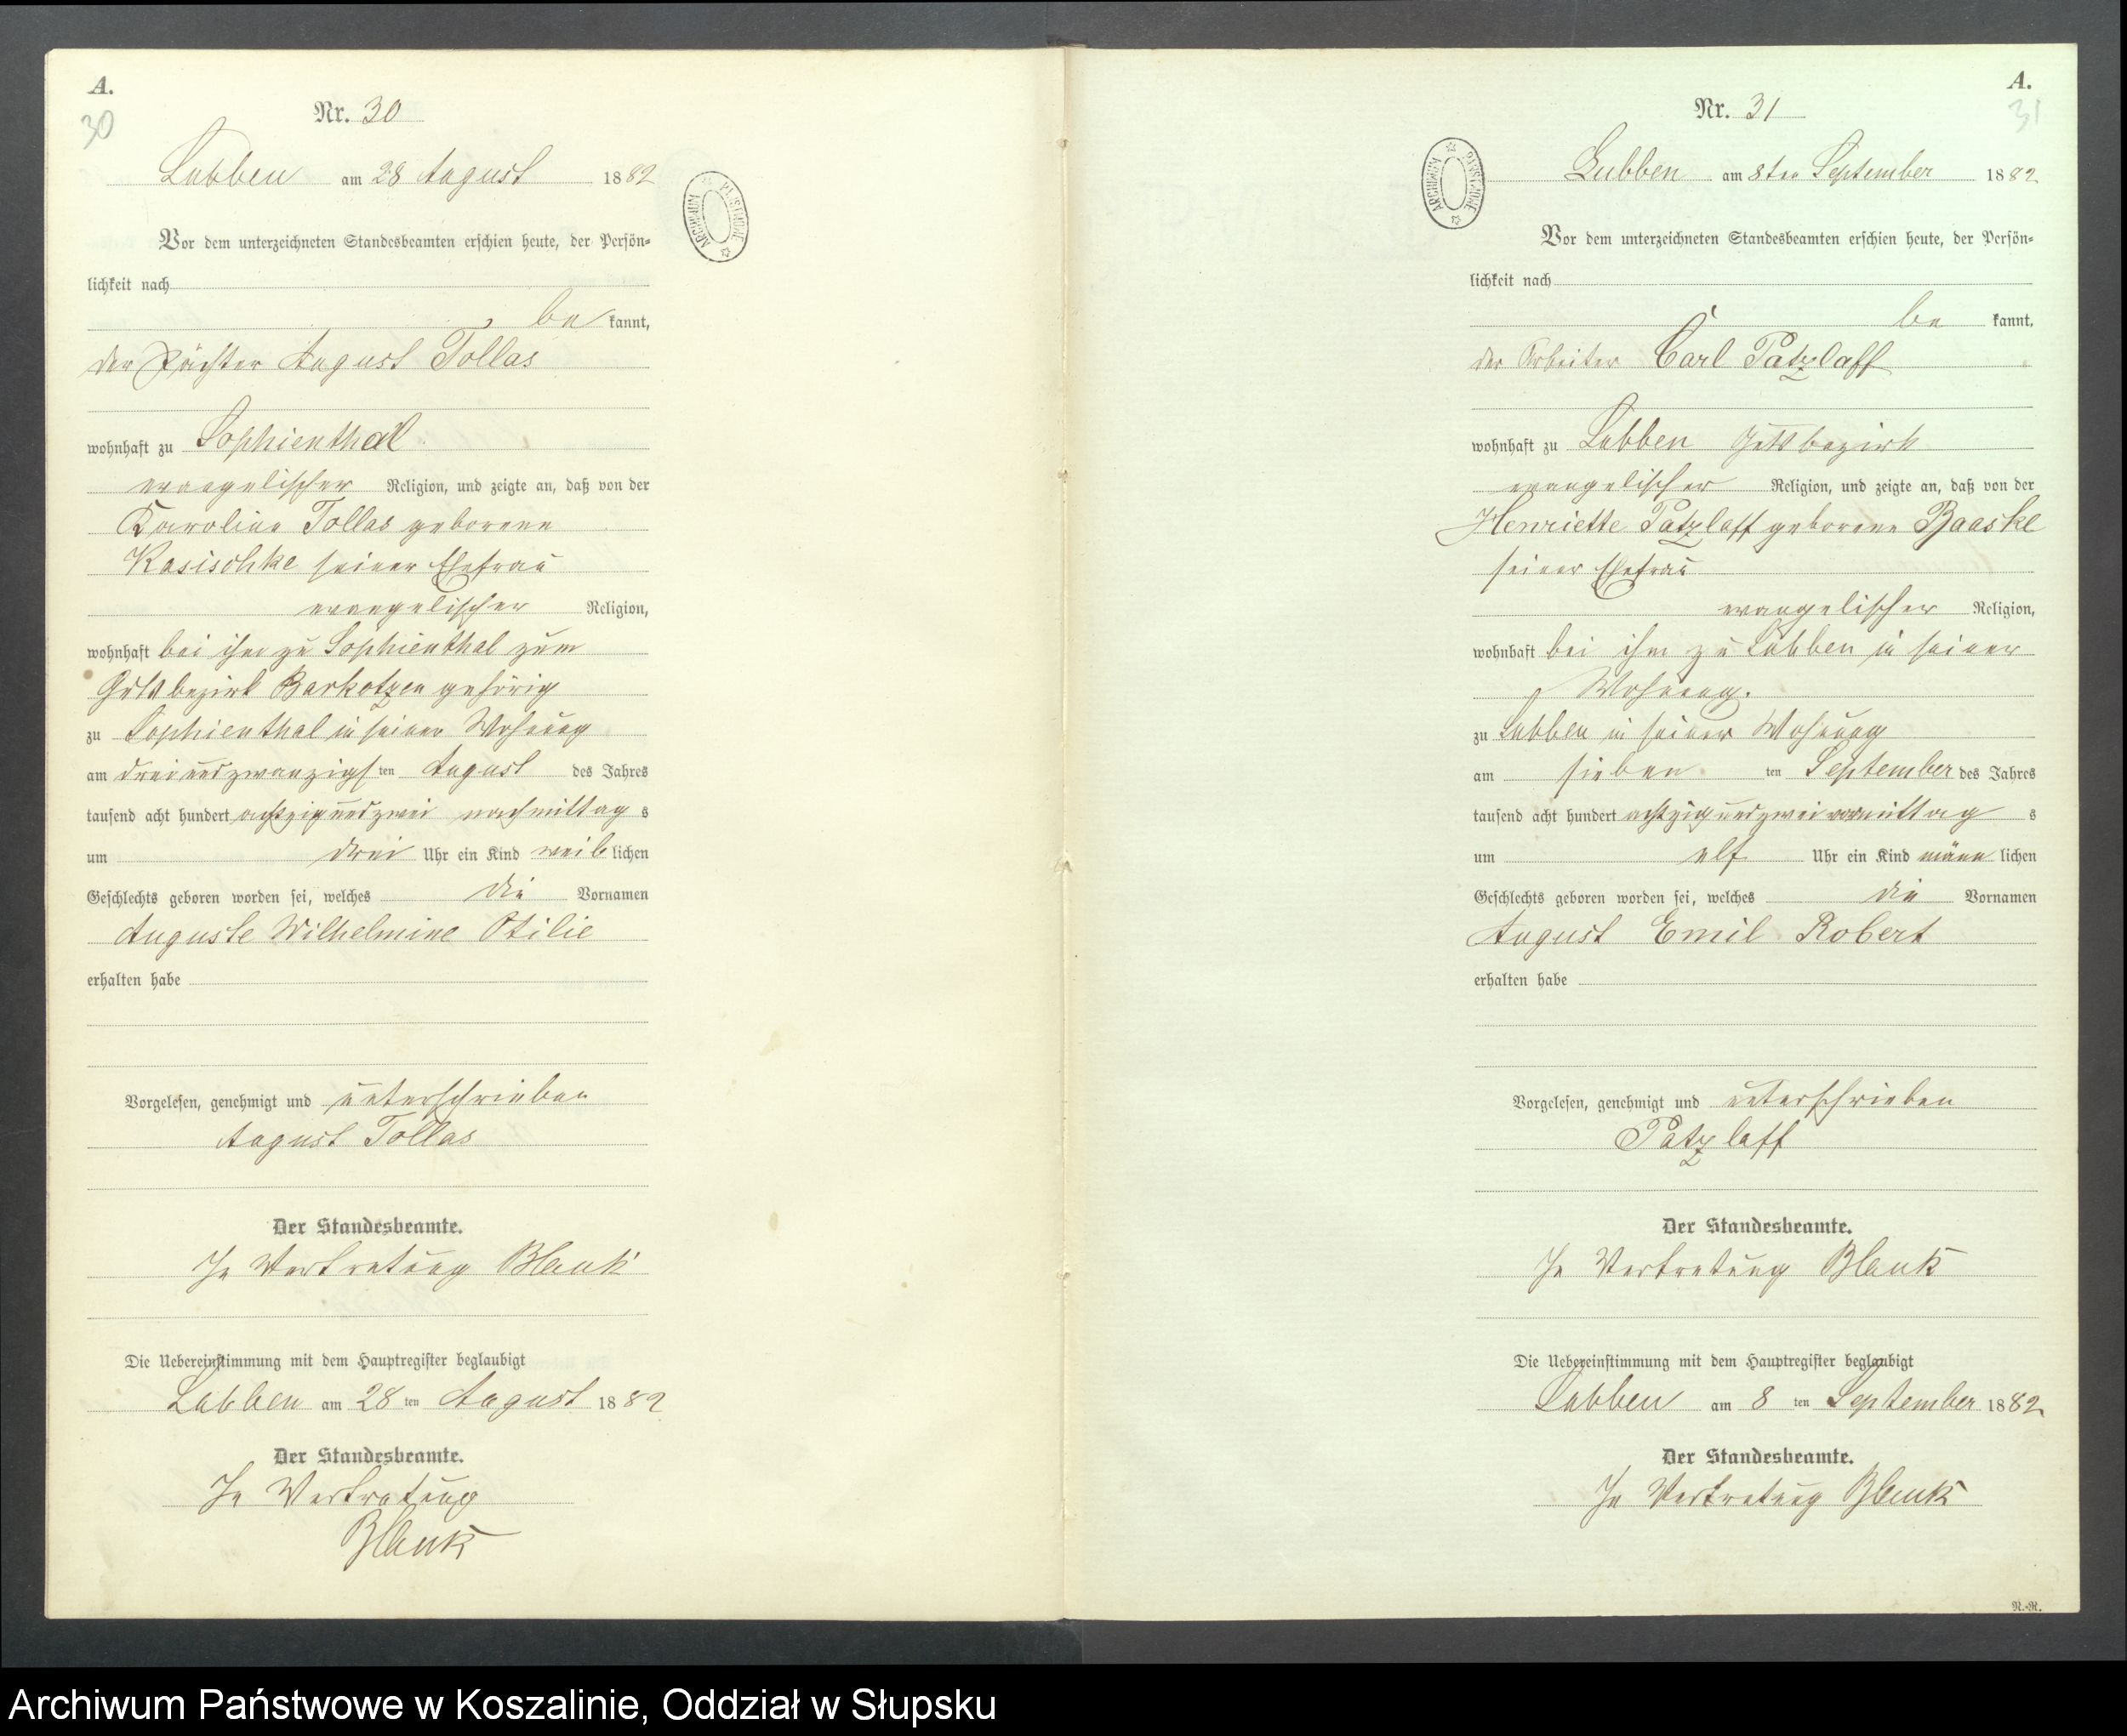 A.
30
Nr. 30
Lubben am 28 August 1882
ARCHIWUM PAŃSTWOWE
Vor dem unterzeichneten Standesbeamten erschien heute, der Persön-
lichkeit nach
be kannt,
der Pächter August Tollas
wohnhaft zu Sophienthal
evangelischer Religion, und zeigte an, daß von der
Karoline Tollas geborene
Kasischke seiner Ehefrau
evangelischer Religion,
wohnhaft bei ihm zu Sophienthal zum
Gutsbezirk Barkotzen gehörig
zu Sophienthal in seiner Wohnung
am dreiundzwanzigsten August des Jahres
tausend acht hundert achtzigundzwei nachmittags
um drei Uhr ein Kind weiblichen
Geschlechts geboren worden sei, welches die Vornamen
Auguste Wilhelmine Otilie
erhalten habe
Vorgelesen, genehmigt und unterschrieben
August Tollas
Der Standesbeamte.
In Vertretung Blank
Die Uebereinstimmung mit dem Hauptregister beglaubigt
Lubben am 28 ten August 1882
Der Standesbeamte.
In Vertretung
Blank
A.
31
Nr. 31
Lubben am 8ten September 1882
ARCHIWUM PAŃSTWOWE
Vor dem unterzeichneten Standesbeamten erschien heute, der Persön-
lichkeit nach
be kannt,
der Arbeiter Carl Patzlaff
wohnhaft zu Lubben Gutsbezirk
evangelischer Religion, und zeigte an, daß von der
Henriette Patzlaff geborene Baaske
seiner Ehefrau
evangelischer Religion,
wohnhaft bei ihm zu Lubben in seiner
Wohnung.
zu Lubben in seiner Wohnung
am sieben ten September des Jahres
tausend acht hundert achtzigundzwei vormittags
um elf Uhr ein Kind männlichen
Geschlechts geboren worden sei, welches die Vornamen
August Emil Robert
erhalten habe
Vorgelesen, genehmigt und unterschrieben
Patzlaff
Der Standesbeamte.
In Vertretung Blank
Die Uebereinstimmung mit dem Hauptregister beglaubigt
Lubben am 8 ten September 1882
Der Standesbeamte.
In Vertretung Blank
R.-R.
Archiwum Państwowe w Koszalinie, Oddział w Słupsku